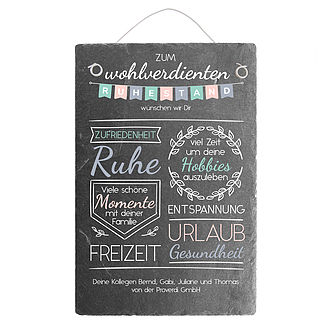 ZUM
wohlverdienten
RUHESTAND
wünschen wir Dir
ZUFRIEDENHEIT
Ruhe
Viele schöne
Momente
mit deiner
Familie
FREIZEIT
viel Zeit
um deine
Hobbies
auszuleben
ENTSPANNUNG
URLAUB
Gesundheit
Deine Kollegen Bernd, Gabi, Juliane und Thomas
von der Proverdi GmbH